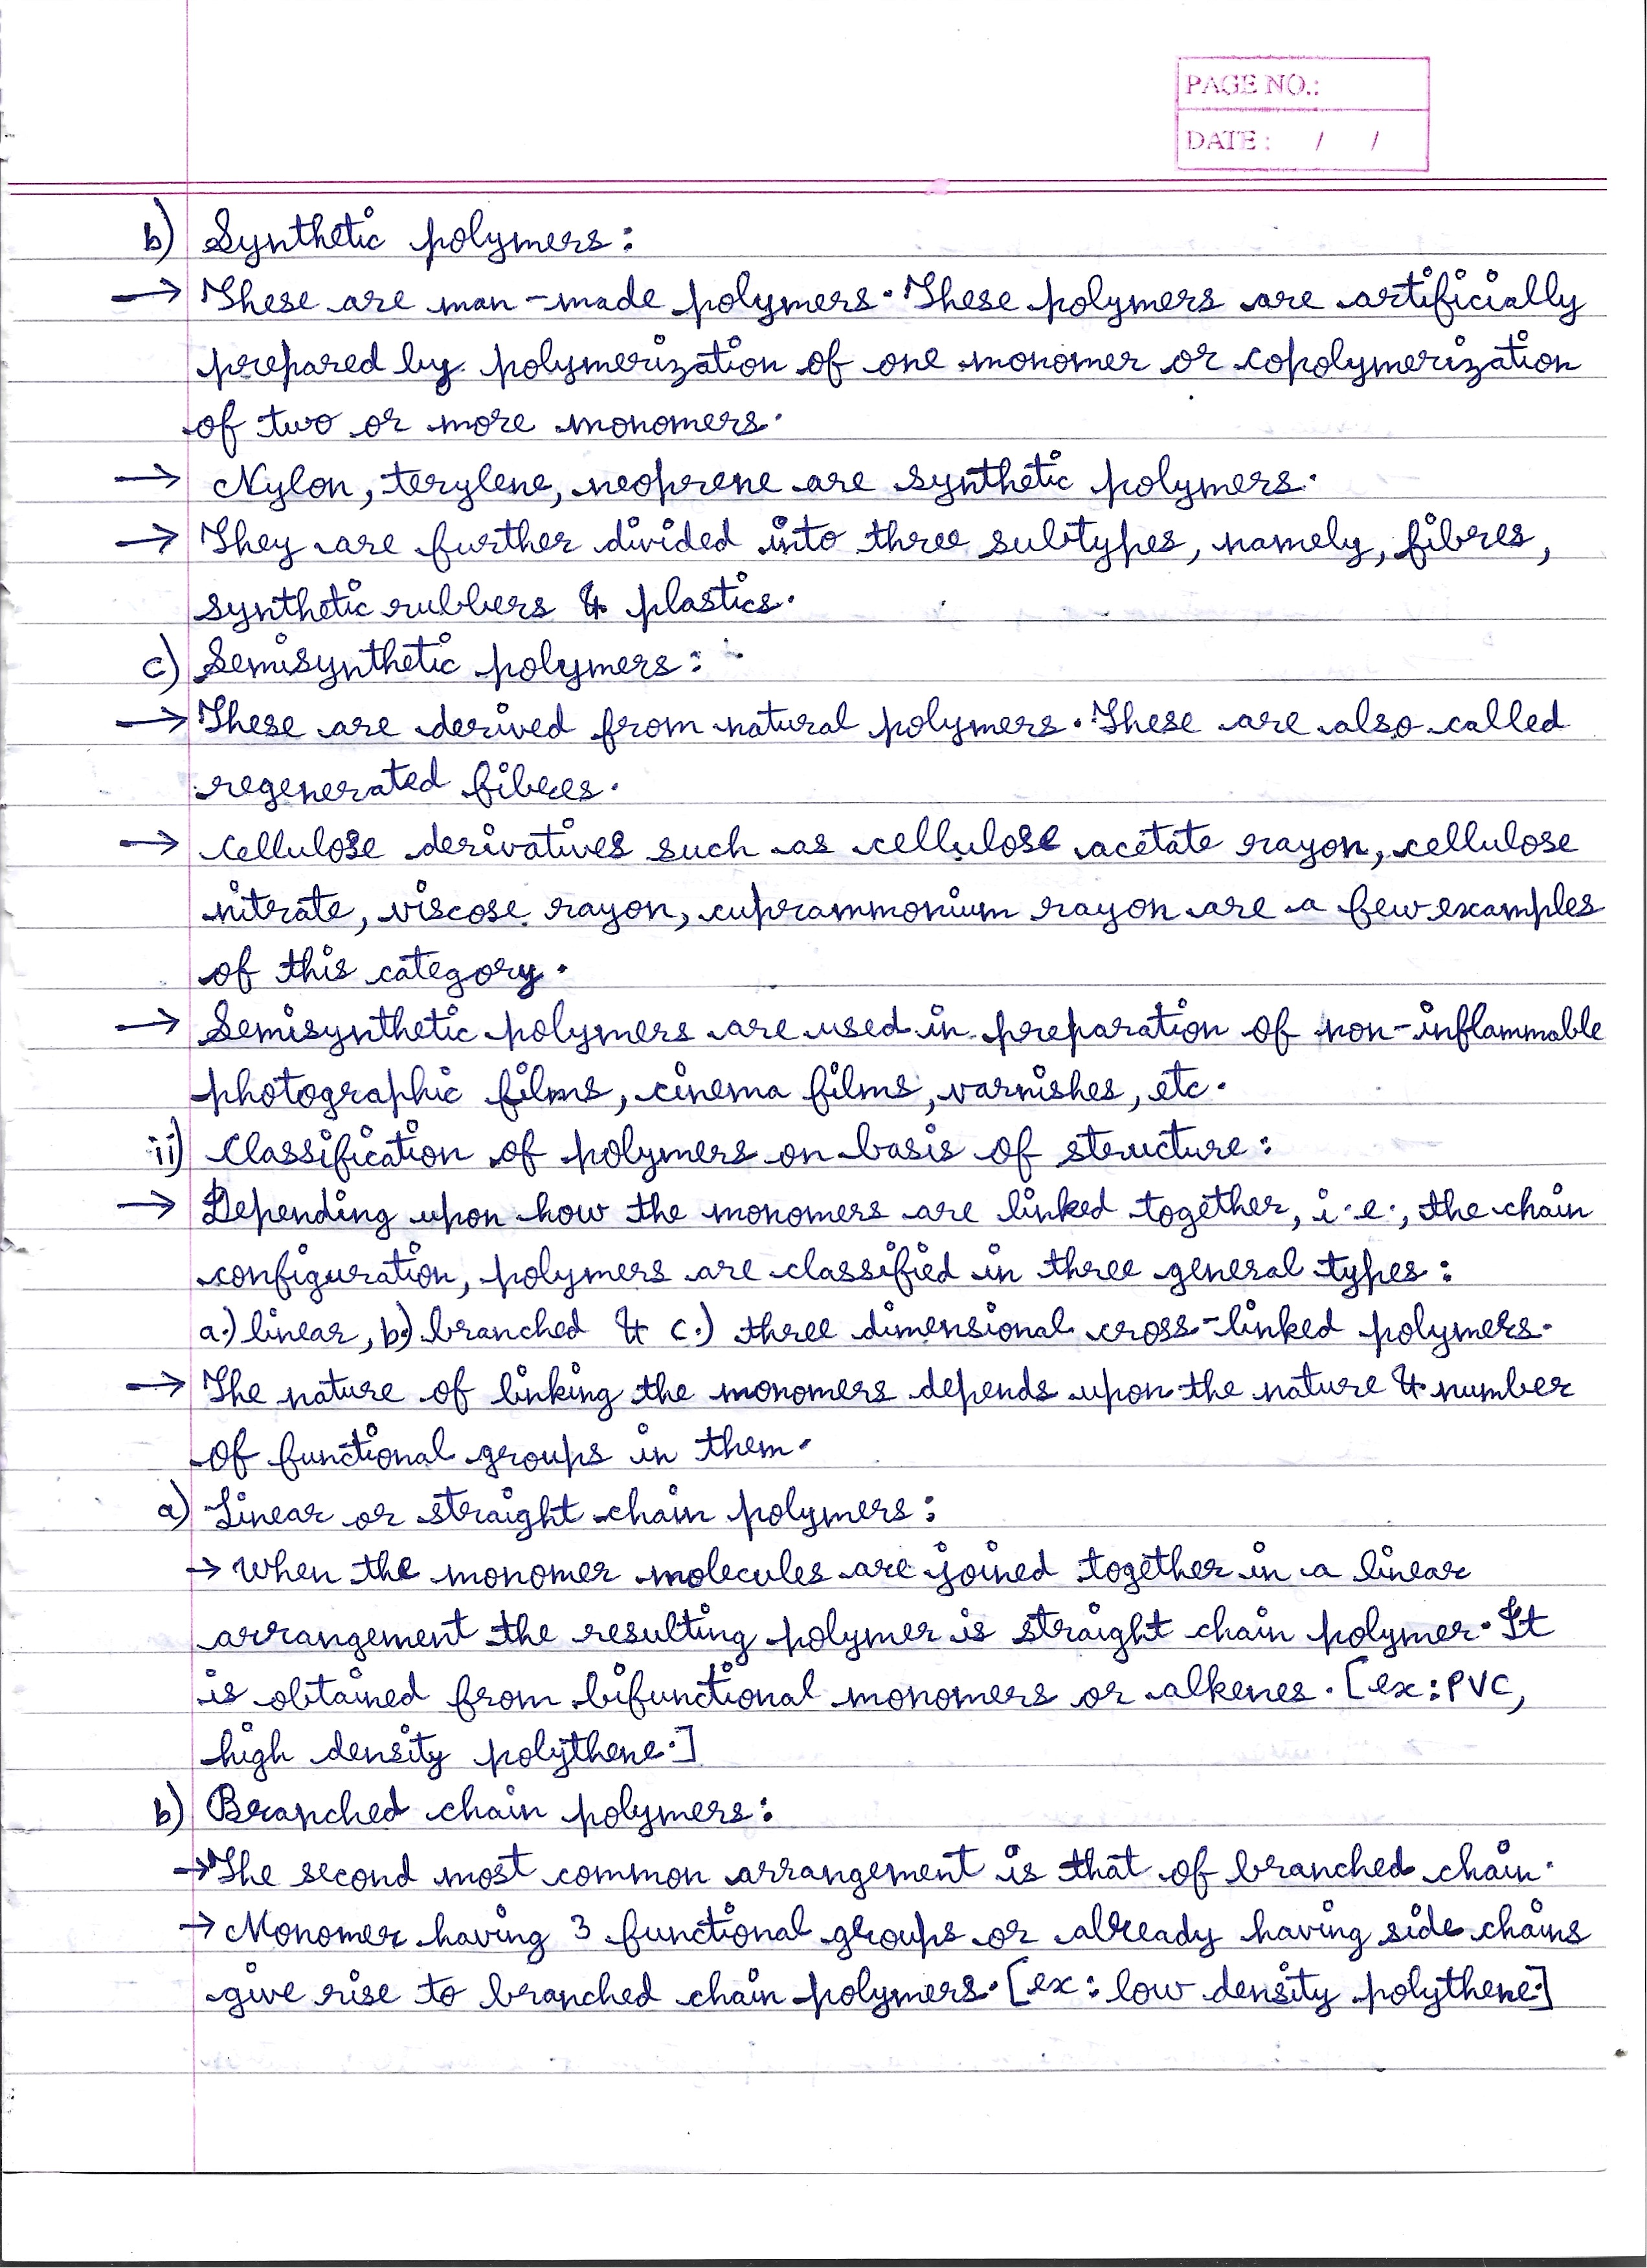 PAGE NO.:
DATE : / /
b) Synthetic polymers:
→ These are man-made polymers. These polymers are artificially
prepared by polymerization of one monomer or copolymerization
of two or more monomers.
→ Nylon, terylene, neoprene are synthetic polymers.
→ They are further divided into three subtypes, namely, fibres,
synthetic rubbers & plastics.
c) Semisynthetic polymers:
→ These are derived from natural polymers. These are also called
regenerated fibres.
→ Cellulose derivatives such as cellulose acetate rayon, cellulose
nitrate, viscose rayon, cuprammonium rayon are a few examples
of this category.
→ Semisynthetic polymers are used in preparation of non-inflammable
photographic films, cinema films, varnishes, etc.
ii) Classification of polymers on basis of structure:
→ Depending upon how the monomers are linked together, i.e., the chain
configuration, polymers are classified in three general types:
a.) linear, b.) branched & c.) three dimensional cross-linked polymers.
→ The nature of linking the monomers depends upon the nature & number
of functional groups in them.
a) Linear or straight chain polymers:
→ When the monomer molecules are joined together in a linear
arrangement the resulting polymer is straight chain polymer. It
is obtained from bifunctional monomers or alkenes. [ex: PVC,
high density polythene.]
b) Branched chain polymers:
→ The second most common arrangement is that of branched chain.
→ Monomer having 3 functional groups or already having side chains
give rise to branched chain polymers. [ex: low density polythene.]